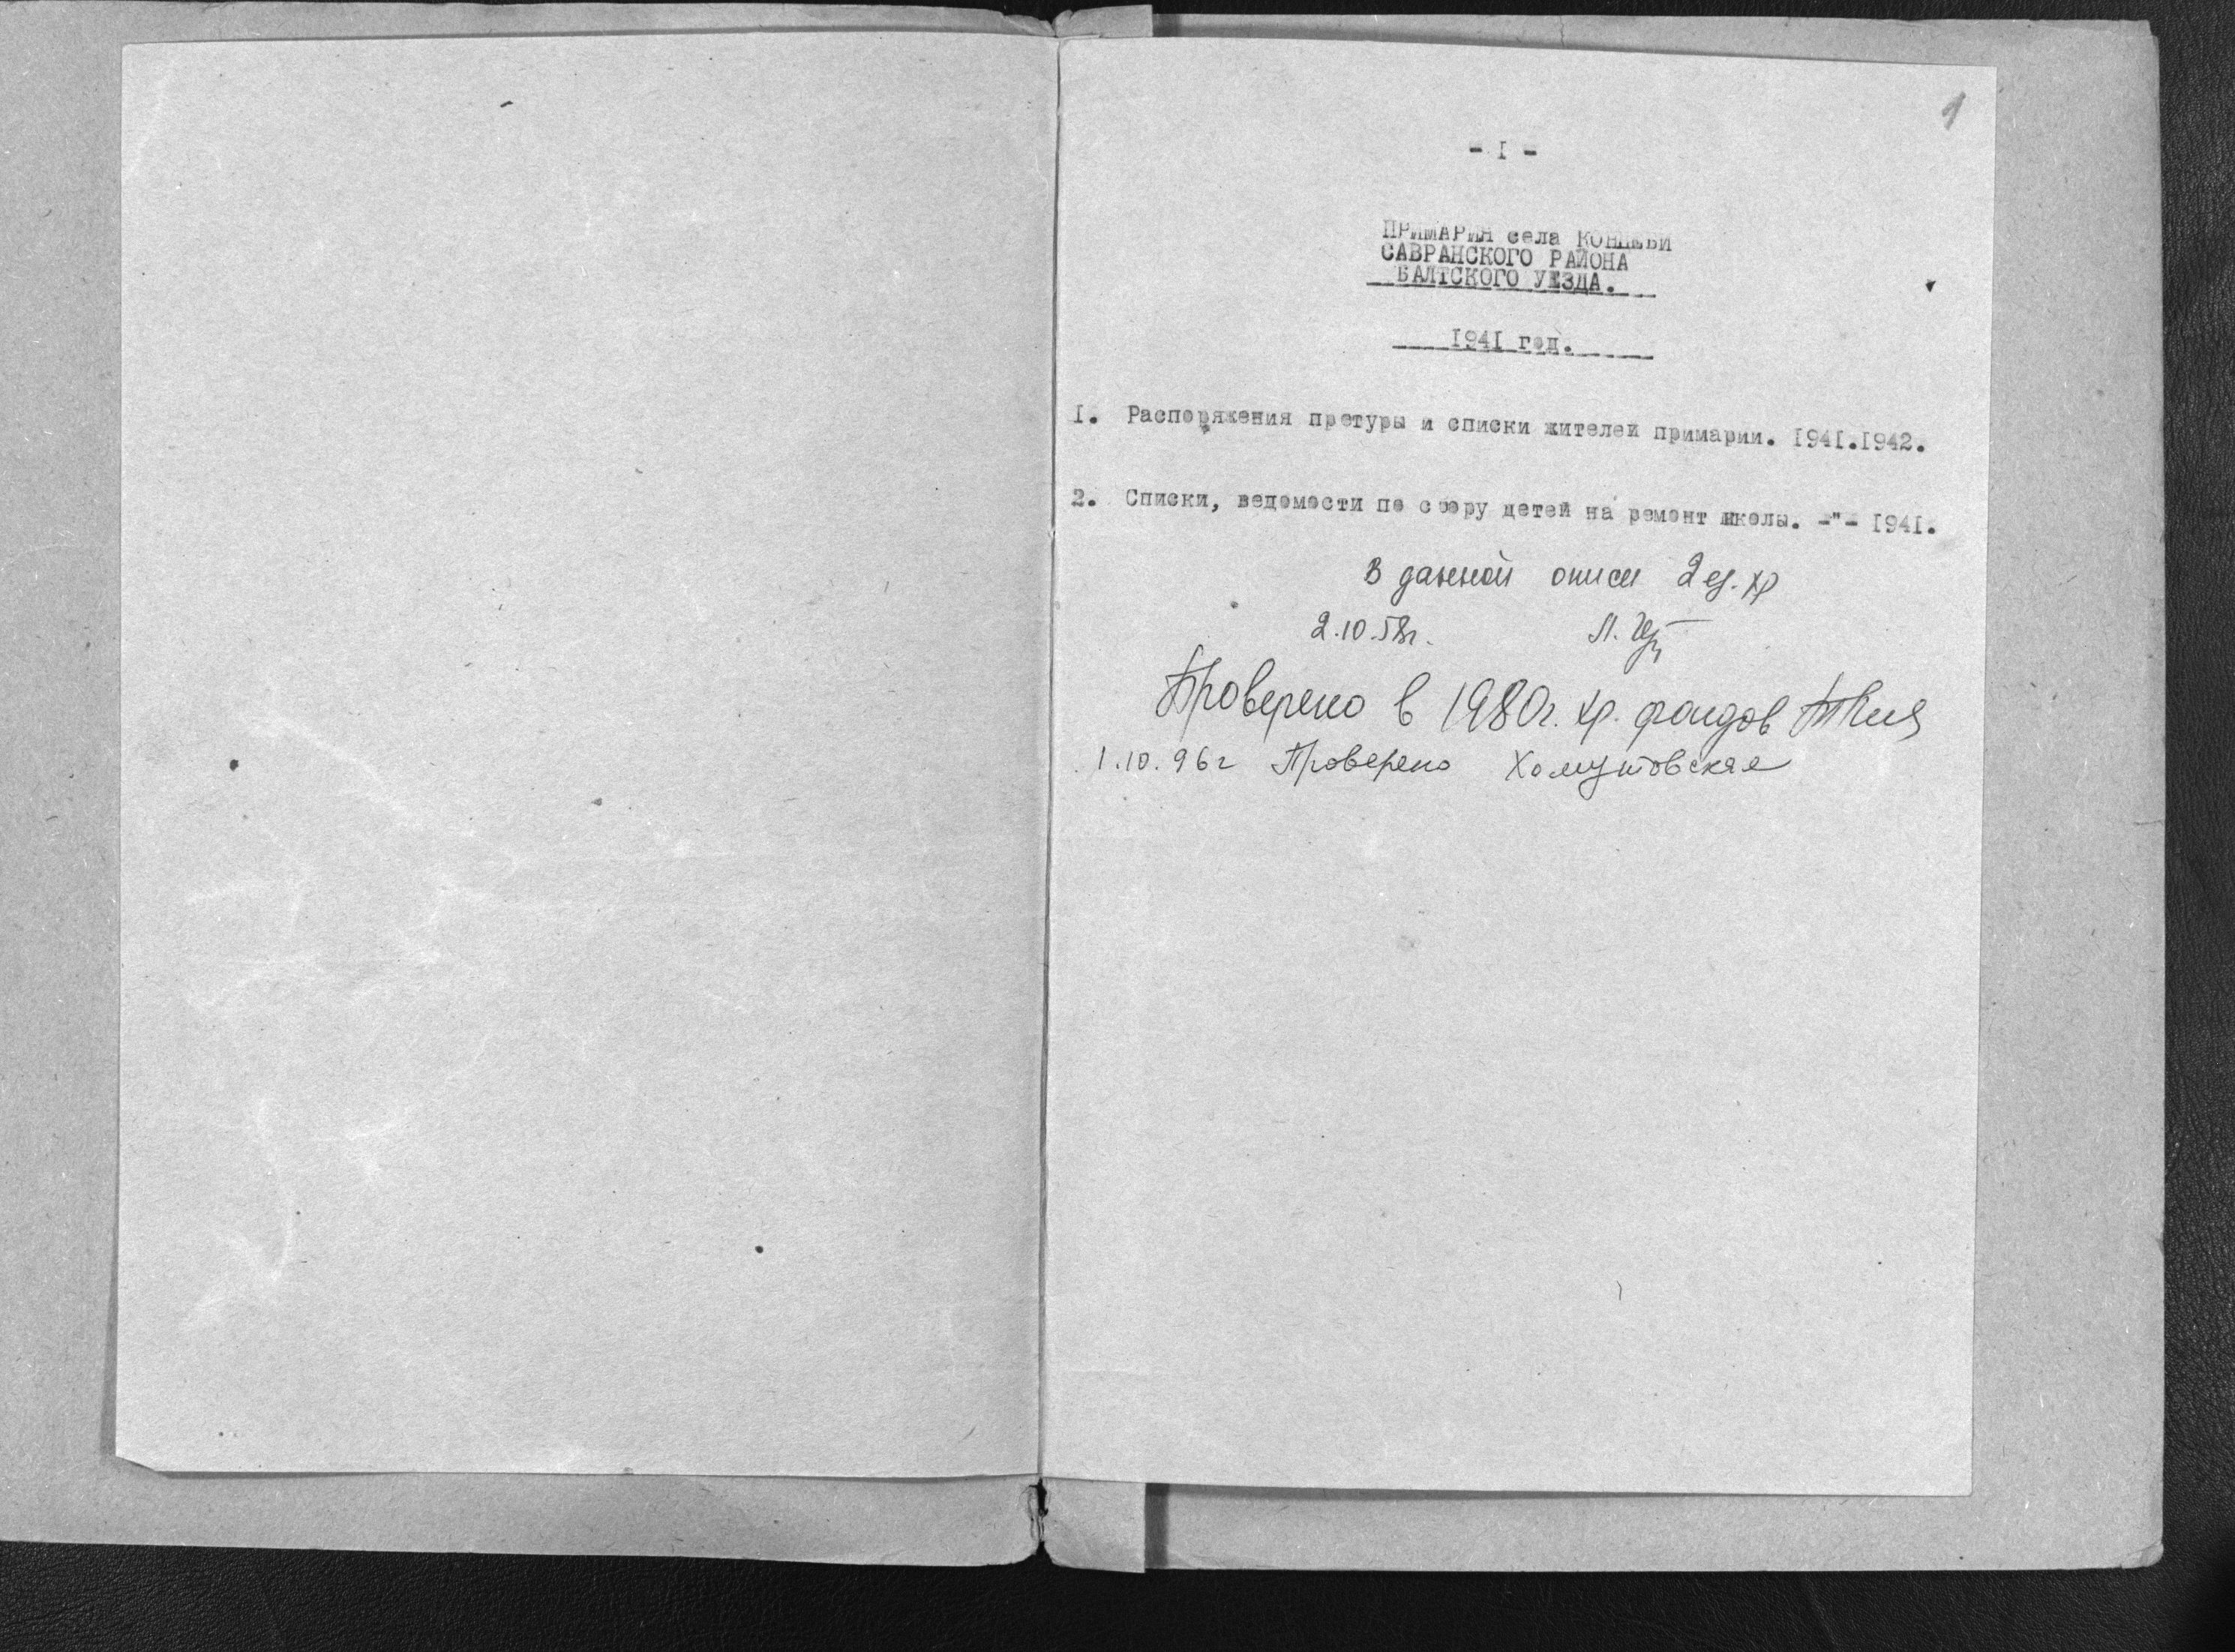 1
- I -
ПРИМАРИЯ села КОНЦЕБИ
САВРАНСКОГО РАЙОНА
БАЛТСКОГО УЕЗДА.
I94I год.
I. Распоряжения претуры и списки жителей примарии. I94I.I942.
2. Списки, ведомости по сбору детей на ремонт школы. -"- I94I.
В данной описи 2 ед. хр
2.10.58г. Л.
Проверено в 1980г. хр. фондов
1.10.96г Проверено Хомутовская